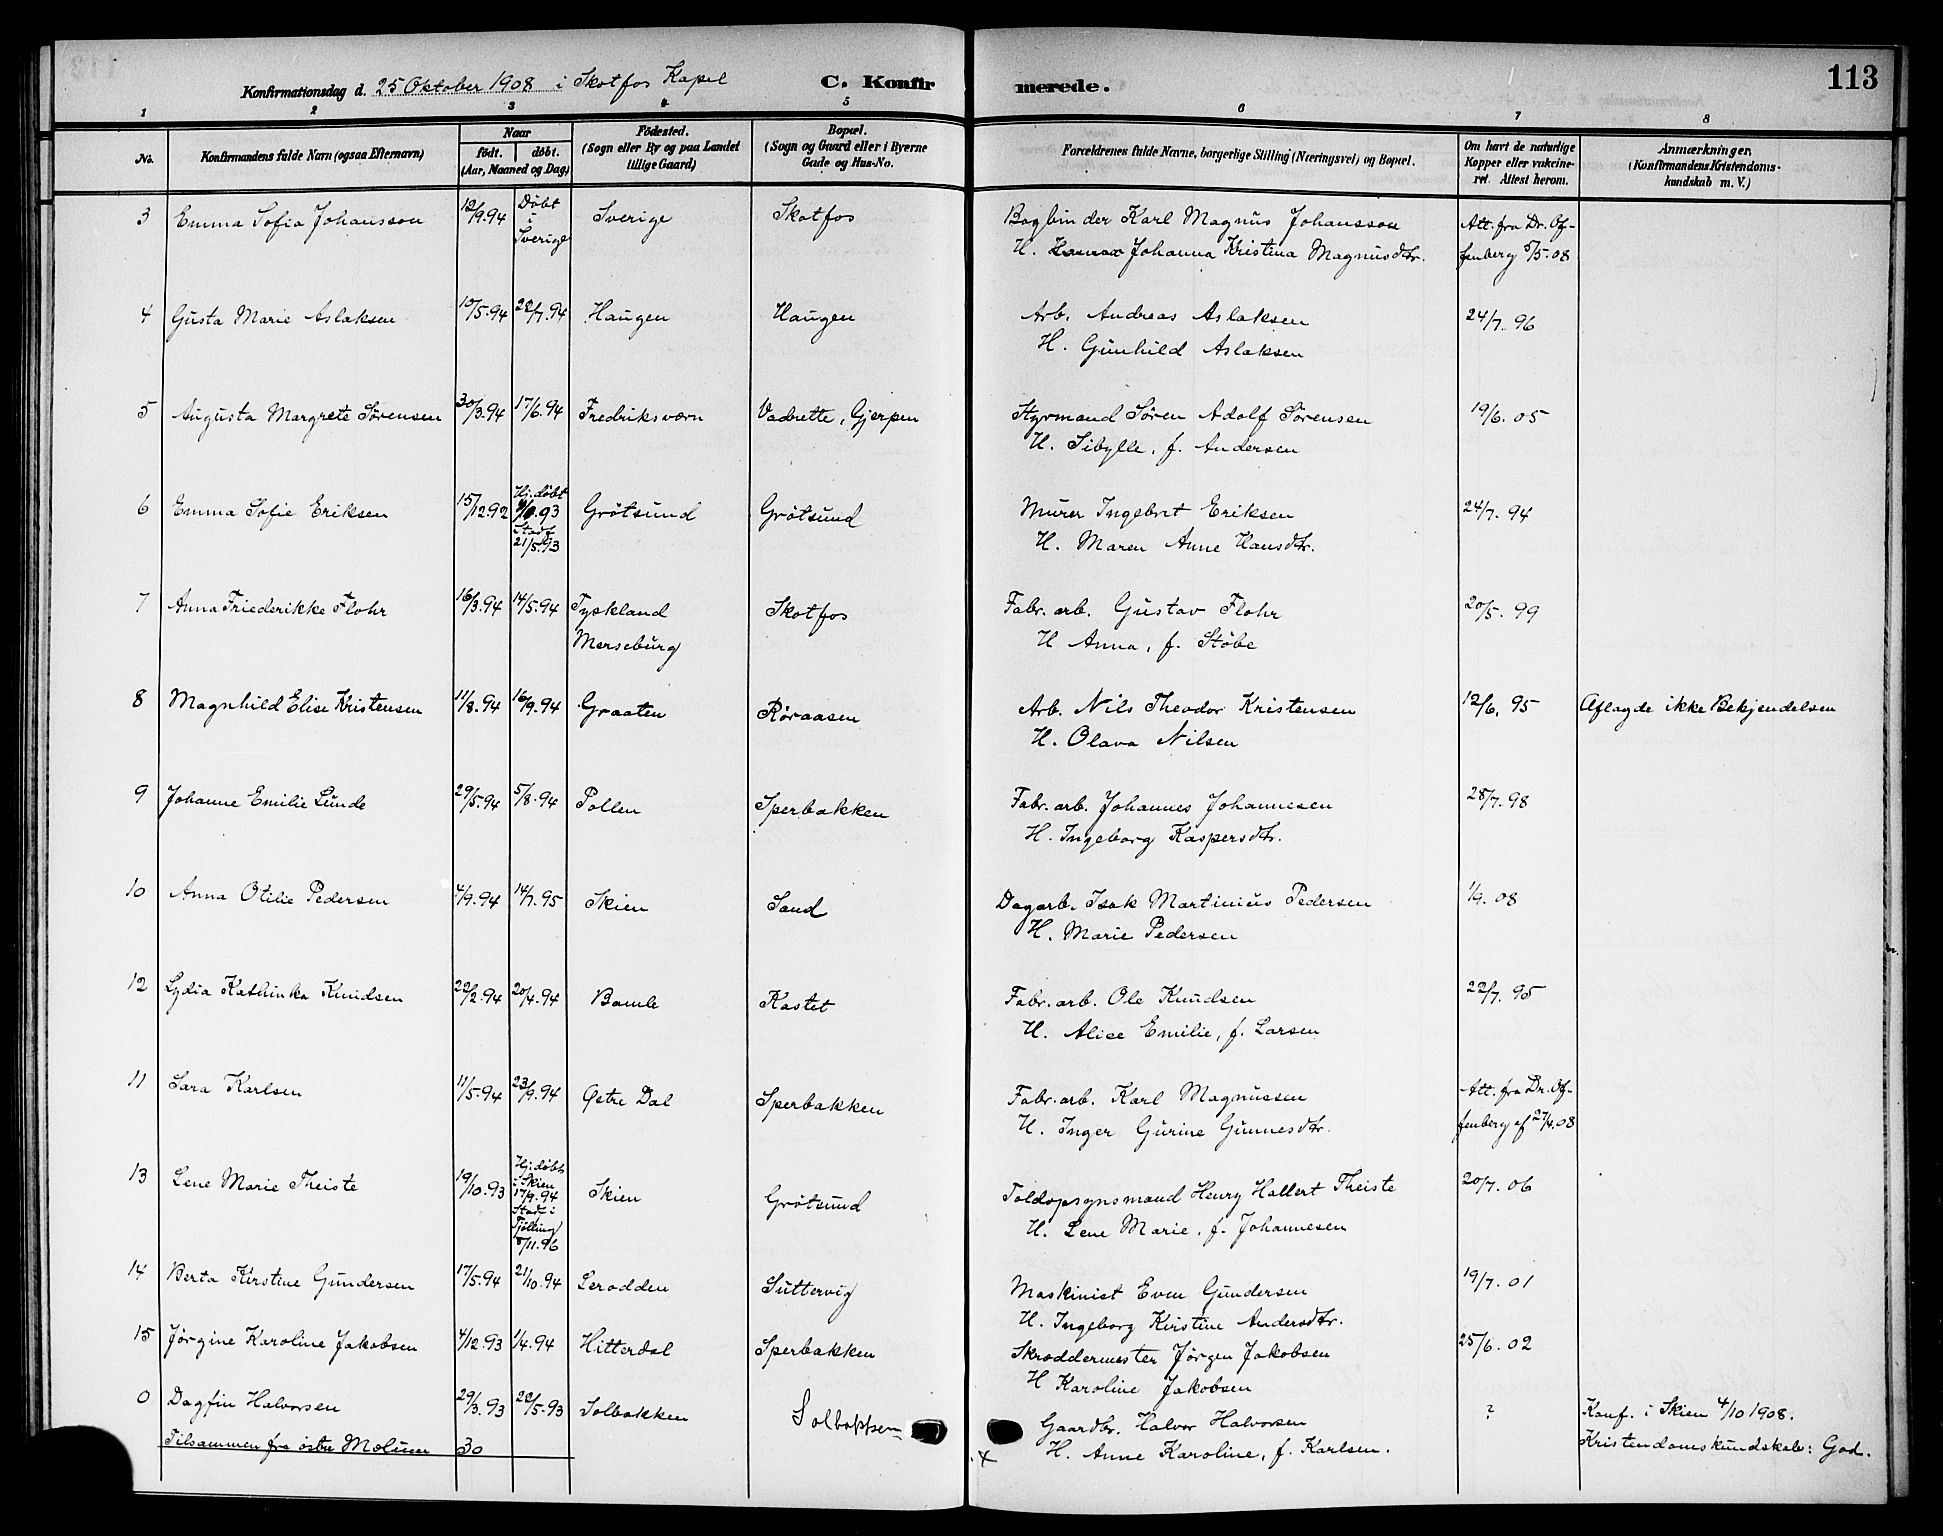 Konfirmationsdag d. 25 Oktober 1908 i Skotfos Kapel C. Konfirmerede. 113
1 2 3 4 5 6 7 8
No. Konfirmandens fulde Navn (ogsaa Efternavn) Naar født. døbt. (Aar, Maaned og Dag) Fødested. (Sogn eller By og paa Landet tillige Gaard) Bopæl. (Sogn og Gaard eller i Byerne Gade og Hus-No. Forældrenes fulde Navne, borgerlige Stilling (Næringsvei) og Bopæl. Om havt de naturlige Kopper eller vakcineret. Attest herom. Anmærkninger. (Konfirmandens Kristendomskundskab m. V.)
3 Emma Sofia Johansson 12/9.94 Døbt i Sverige Sverige Skotfos Bogbinder Karl Magnus Johansson Att. fra Dr. Of-
H. Johanna Kristina Magnusdtr. fenberg 5/5.08
4 Gusta Marie Aslaksen 10/5.94 22/7.94 Haugen Haugen Arb. Andreas Aslaksen 24/7.96
H. Gunhild Aslaksen
5 Augusta Margrete Sørensen 30/3.94 17/6.94 Fredriksværn Vadrette, Gjerpen Styrmand Søren Adolf Sørensen 19/6.05
H. Sibylle, f. Andersen
6 Emma Sofie Eriksen 15/12.92 Hj. døbt .93 Stadf 21/5.93 Grøtsund Grøtsund Murer Ingebret Eriksen 24/7.94
H. Maren Anne Hansdtr.
7 Anna Friederikke Flohr 16/3.94 14/5.94 Tyskland Skotfos Fabr. arb. Gustav Flohr 20/5.99
Merseburg H Anna, f. Støbe
8 Magnhild Elise Kristensen 11/8.94 16/9.94 Graaten Røraasen Arb. Nils Theodor Kristensen 12/6.95 Aflagde ikke Bekjendelsen
H. Olava Nilsen
9 Johanne Emilie Lunde 29/5.94 5/8.94 Pollen Sperbakken Fabr. arb. Johannes Johannesen 28/7.98
H. Ingeborg Kaspersdtr.
10 Anna Otilie Pedersen 4/9.94 14/7.95 Skien Sand Dagarb. Isak Martinius Pedersen 1/9.08
H. Marie Pedersen
12 Lydia Kathinka Knudsen 22/2.94 20/4.94 Bamle Kastet Fabr. arb. Ole Knudsen 22/7.95
H. Alice Emilie, f. Larsen
11 Sara Karlsen 11/5.94 23/9.94 Østre Dal Sperbakken Fabr. arb. Karl Magnussen Att. fra Dr. Of-
H. Inger Gurine Gunnesdtr. fenberg af 27/4.08
13 Lene Marie Theiste 19/10.93 Hj. døbt i Skien 17/9.94 Stadf i Tjølling 8/11.96 Skien Grøtsund Toldopsynsmand Henry Hallert Theiste 20/7.06
H. Lene Marie, f. Johannesen
14 Berta Kirstine Gundersen 17/5.94 21/10.94 Lerodden Suttervig Maskinist Even Gundersen 19/7.01
H. Ingeborg Kirstine Andersdtr.
15 Jørgine Karoline Jakobsen 4/12.93 1/4.94 Hitterdal Sperbakken Skræddermester Jørgen Jakobsen 25/6.02
H Karoline Jakobsen
0 Dagfin Halvorsen 29/3.93 22/5.93 Solbakken Solbakken Gaardbr. Halvor Halvorsen ? Konf. i Skien 4/10 1908.
Tilsammen fra østre Solum 30 x H. Anne Karoline, f. Karlsen. Kristendomskundskab: God.